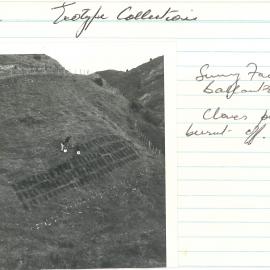 Ecotype Collections
Sunny Fac
Ballant
Clones p
burnt off.